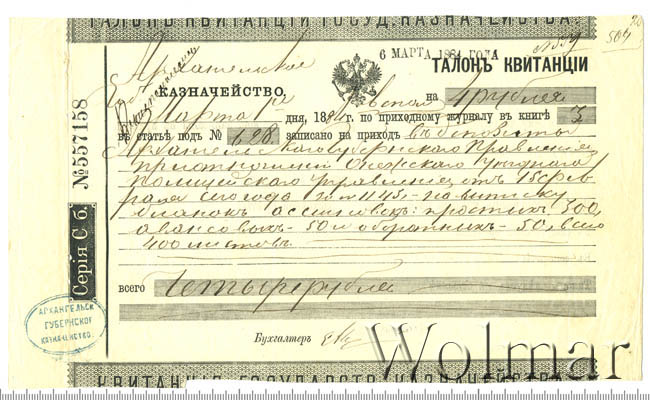 ТАЛОНЪ КВИТАНЦІИ ГОСУД. КАЗНАЧЕЙСТВА.
504
№ 559
6 МАРТА 1884 ГОДА
Архангельское
ТАЛОНЪ КВИТАНЦІИ
КАЗНАЧЕЙСТВО,
на 4 рубля
Марта дня, 1884 г. по приходному журналу въ книгѣ 3
въ статьѣ подъ № 628 записано на приходъ въ депозиты
Архангельскаго Губернскаго Правленія
при отношеніи Онежскаго Уѣзднаго
Полицейскаго Управленія отъ 15 Фев
раля сего года за № 1145, на выписку
бланокъ ассигновокъ: простыхъ 300,
авансовыхъ - 50 и обратныхъ - 50, всего
400 листовъ
всего Четыре рубля
Бухгалтеръ
Серія С б. № 557158
АРХАНГЕЛЬСК
ГУБЕРНСКОЕ
КАЗНАЧЕЙСТВО
Wolmar
КВИТАНЦІЯ ГОСУДАРСТВ. КАЗНАЧЕЙСТВА